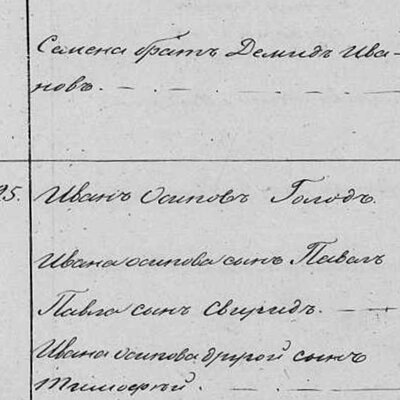 Семена братъ Демидъ Ива-
новъ.
25. Иванъ Осиповъ Голодъ.
Ивана осипова сынъ Павелъ
Павла сынъ Свиридъ.
Ивана осипова другой сынъ
Тимофѣй.